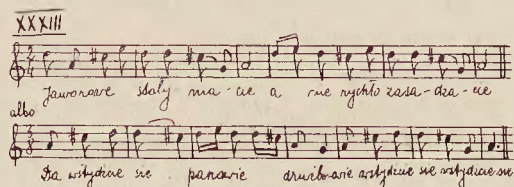 XXXIII
Jaworowe stoły ma-cie a nie rychło zasa-dza-cie
albo
Da wstydźcie sie panowie drużbo-wie wstydźcie sie wstydźcie sie